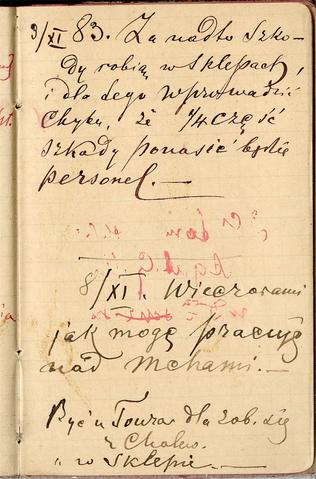 3/XI 83. Za nadto szko-
dy robią w sklepach,
i dla tego wprowadzić
chyba, że 1/4 część
szkady ponasić będzie
personel. —
8/XI. Wieczorami
jak mogę pracuję
nad mchami. —
Być u Tour dla zob. się
z
" w Sklepie. —